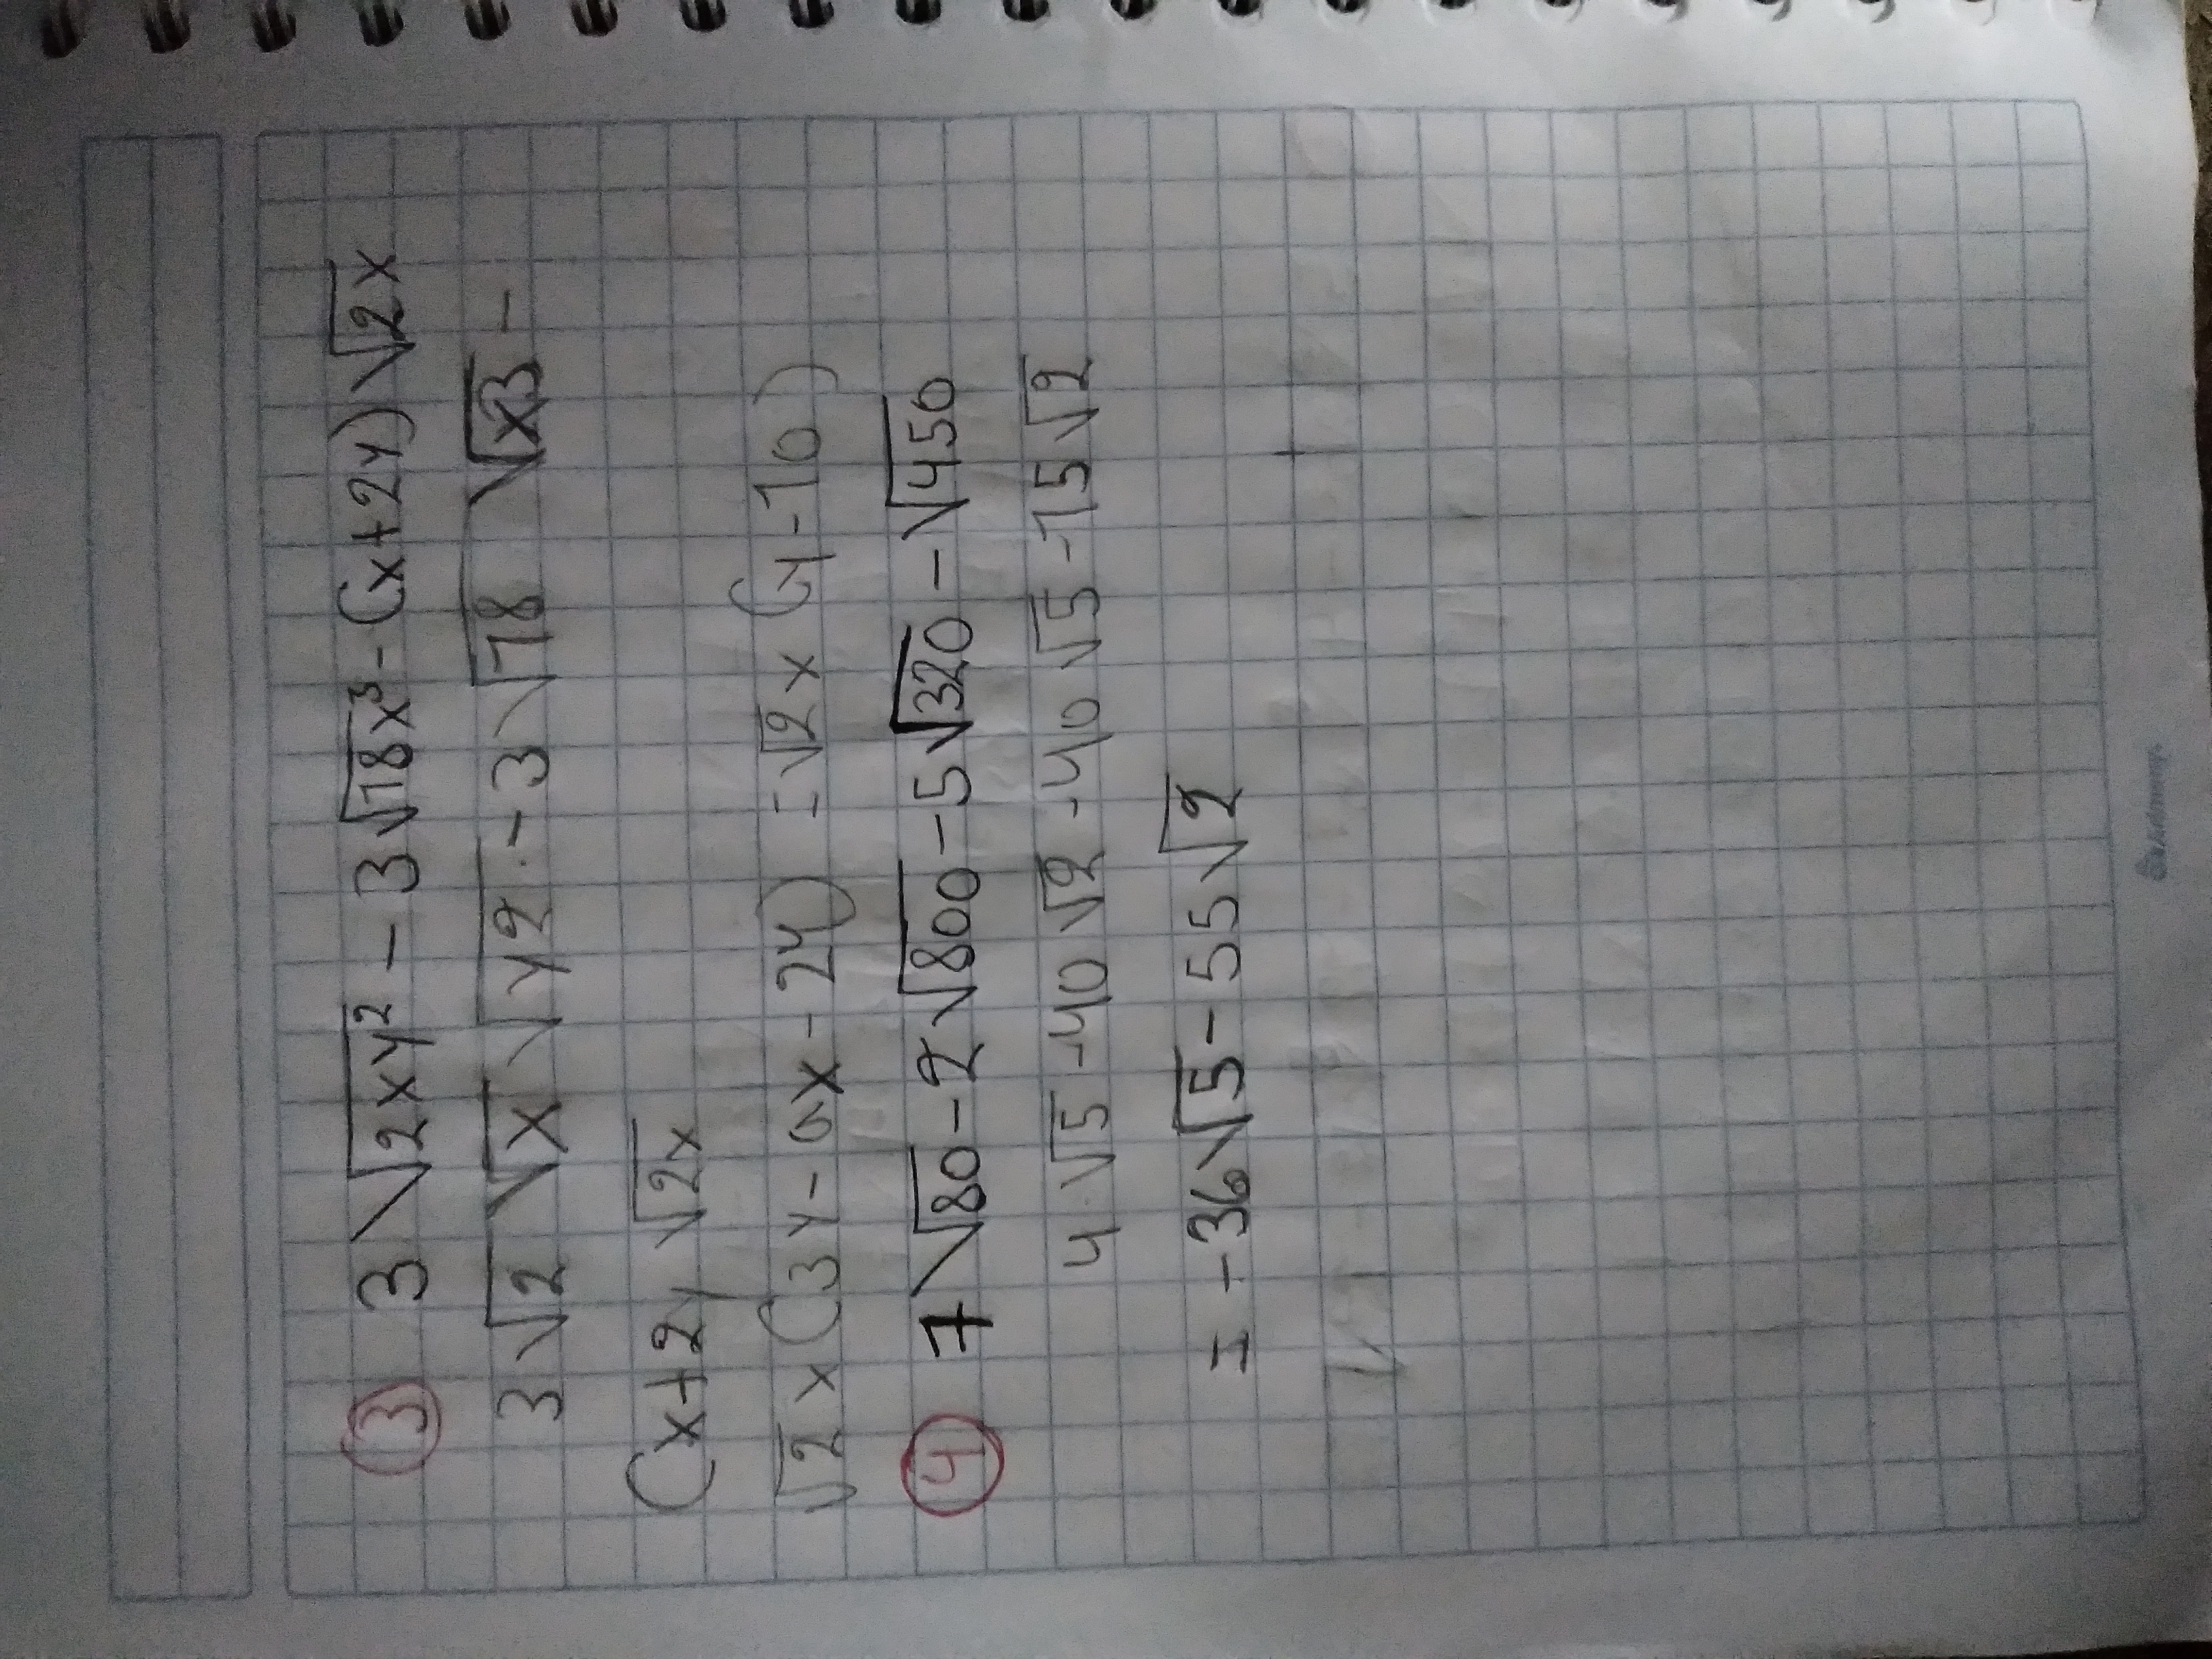 ③ 3√2xy² - 3√18x³ - (x+2y)√2x
3√2 √x √y2 - 3√18 √x3 -
(x+2y √2x
√2x(3y-9x-2y) =√2x (y-10)
④ 7√80-2√800-5√320-√450
4√5 -40√2 -40√5 -15√2
= -36√5-55√2